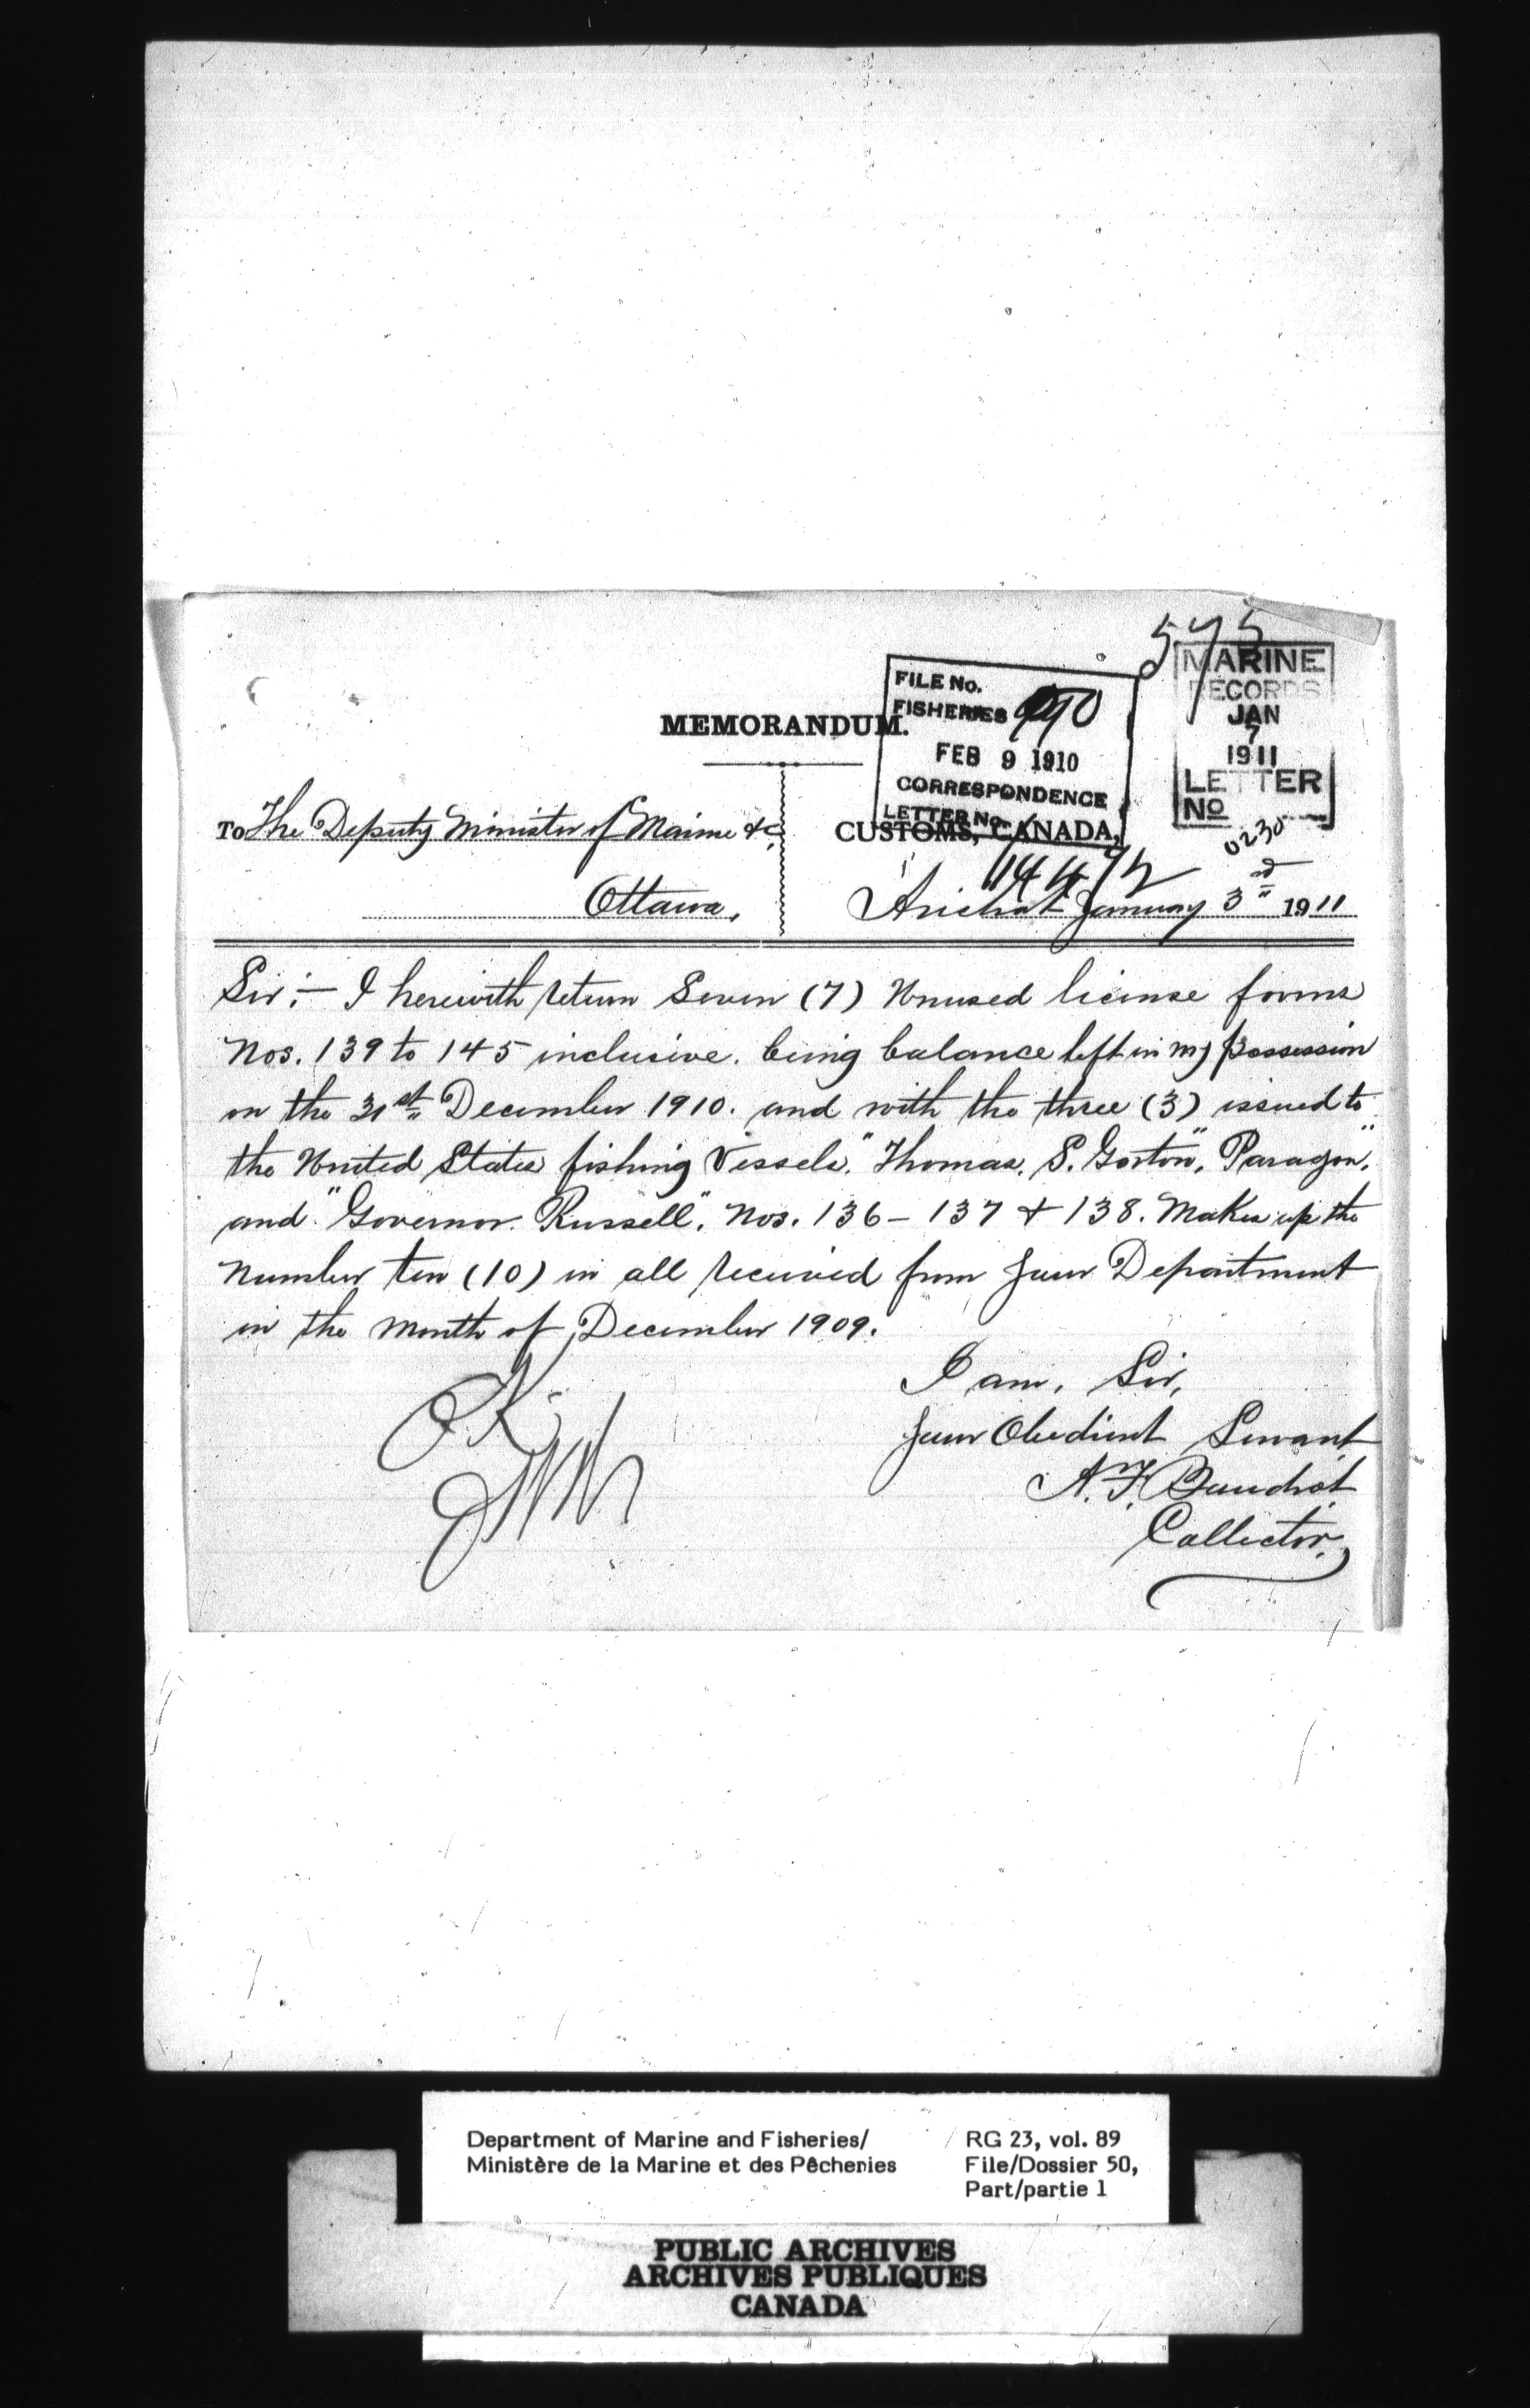 575
MARINE
RECORDS
JAN
7
1911
LETTER
No
0230
FILE No.
FISHERIES
FEB 9 1910
CORRESPONDENCE
LETTER No.
MEMORANDUM.
To The Deputy Minister of Marine &c,
Ottawa,
CUSTOMS, CANADA,
Arichat January 3rd 1911
Sir:- I herewith return Seven (7) Unused license forms
Nos. 139 to 145 inclusive. being balance left in my possession
on the 31st December 1910. and with the three (3) issued to
the United States fishing Vessels, "Thomas. S. Gorton", Paragon",
and "Governor Russell". Nos. 136 - 137 & 138. Makes up the
number ten (10) in all received from your Department
in the month of December 1909.
I am, Sir,
Your Obedient Servant
Collector.
OK
Department of Marine and Fisheries/
Ministère de la Marine et des Pêcheries
RG 23, vol. 89
File/Dossier 50,
Part/partie 1
PUBLIC ARCHIVES
ARCHIVES PUBLIQUES
CANADA